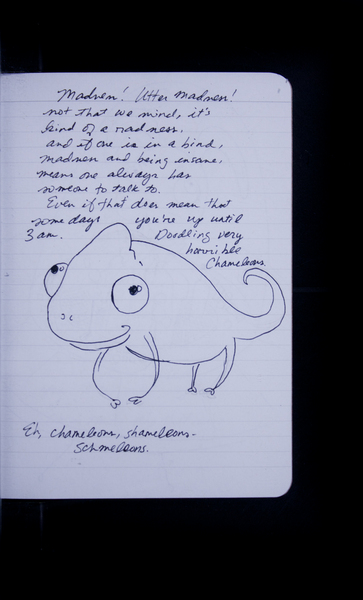 Madness! Utter madness!
not that we mind, it's
kind of a madness,
and if one is in a bind,
madness and being insane,
means one always has
someone to talk to.
Even if that does mean that
some days you're up until
3 am. Doodling very
horrible
Chameleons.
Eh, chameleons, shameleons-
Schmeleons.